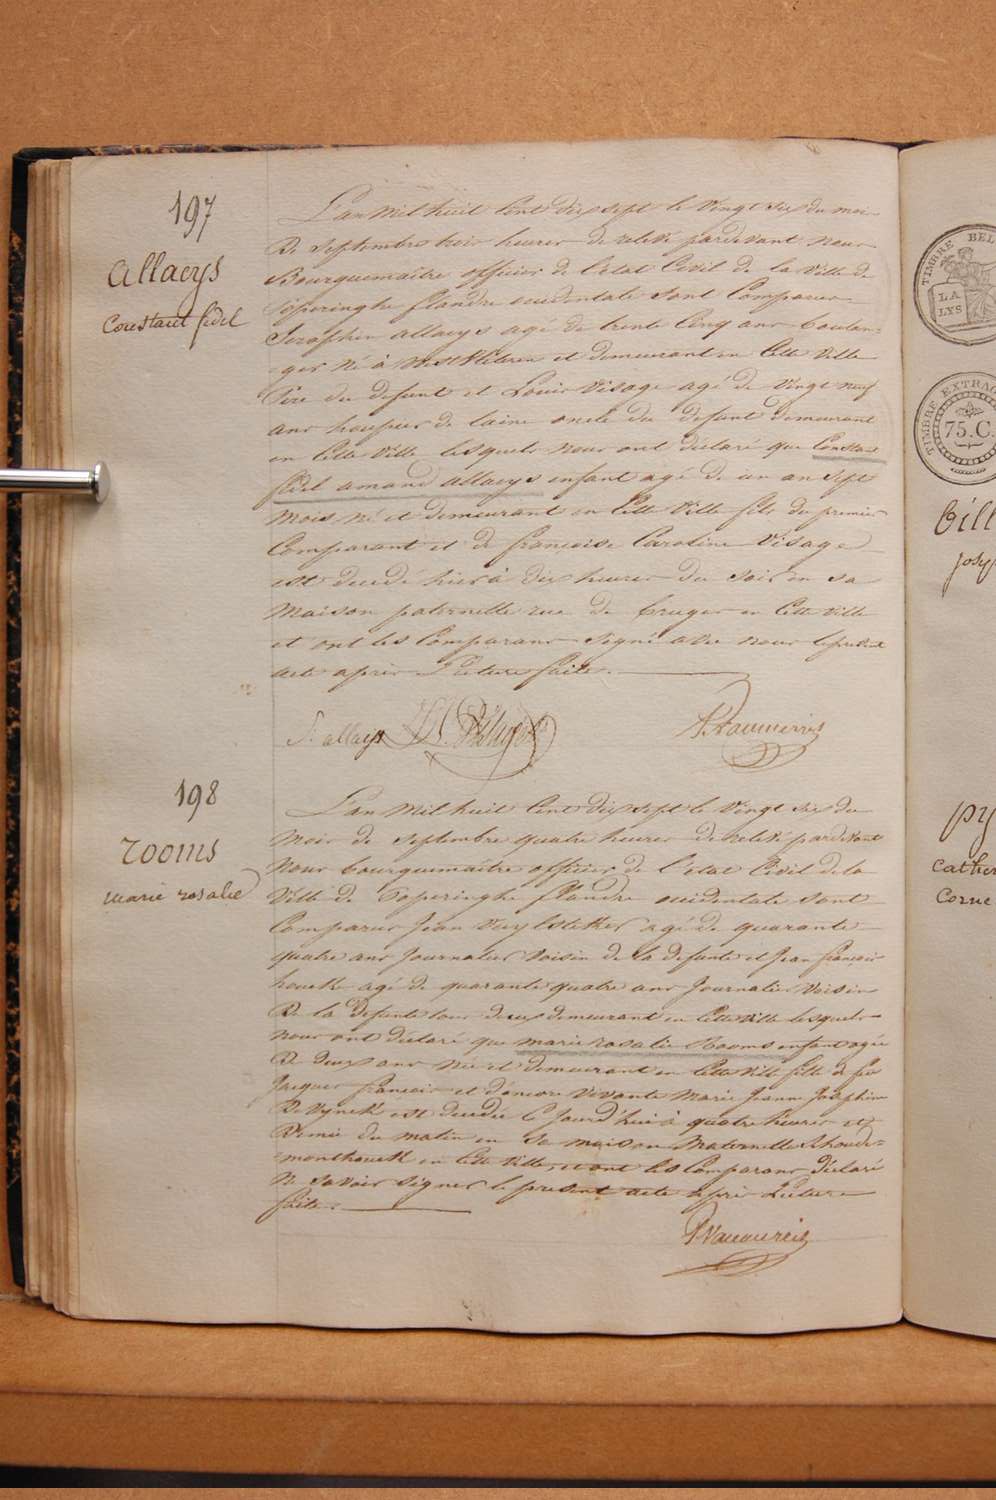 197
allaeys
Constant fidel
L'an Mil huit Cent dix sept le Vingt six du mois
De Septembre trois heures de relevé pardevant nous
Bourguemaître officier de l'état Civil de la Ville de
poperinghe flandre occidentale sont Comparus
Seraphin allaeys agé de trente Cinq ans boulan=
ger né à Westvleteren et demeurant en Cette Ville
Père du defunt et Louis Visage agé de Vingt neuf
ans houpier de laine oncle du defunt demeurant
en Cette Ville lesquels nous ont déclaré que Constant
fidel amand allaeys enfant agé de un an sept
Mois né et demeurant en Cette Ville fils du premier
Comparant et de françoise Caroline Visage
est decedé hier à dix heures du soir en sa
Maison paternelle rue de bruges en Cette Ville
et ont les Comparans signé avec nous le present
acte après Lecture faite.
S. allaeys
198
rooms
marie rosalie
L'an Mil huit Cent dix sept le Vingt six du
Mois de Septembre quatre heures de relevé pardevant
Nous bourguemaître officier de l'état Civil de la
Ville de Poperinghe flandre occidentale sont
Comparus Jean agé de quarante
quatre ans Journalier Voisin de la defunte et Jean françois
houcke agé de quarante quatre ans Journalier Voisin
De la Defunte tous deux demeurant en Cette Ville lesquels
nous ont déclaré que marie rosalie Rooms enfant agée
De deux ans née et demeurant en Cette Ville fille de feu
Jacques francois et d'encore Vivante Marie Jeanne Josephine
est decedée Ce Jourd'hui à quatre heures et
Demie du matin en sa maison Maternelle
en Cette Ville, et ont les Comparans Déclaré
Ne Savoir Signer le present acte après Lecture
faite.
TIMBRE BEL
LA
LYS
TIMBRE EXTRAO
75.C.
Josep
Cather
Corne